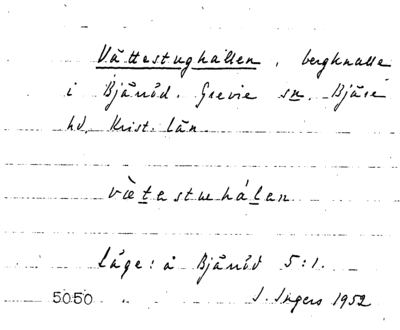 Vättestughällen, bergknalle
i Bjäröd. Grevie sn. Bjäre
hd. Krist. län.
vætastuehálan
Läge: å Bjäröd 5:1.
5050 I. Ingers 1952